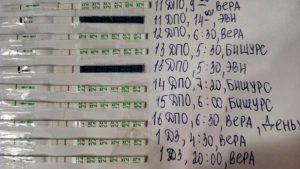 11 ДПО, 9⁰⁰, ВЕРА
11 ДПО, 14⁰⁰, ЭВН
12 ДПО, 6:30, ВЕРА
13 ДПО, 5:30, БИШУРС
13 ДПО, 5:30, ЭВН
14 ДПО, 7:20, БИШУРС
15 ДПО, 6:00, БИШУРС
16 ДПО, 6:30, ВЕРА, ДЕНЬ
1 ДЗ, 4:30, ВЕРА
1 ДЗ, 20:00, ВЕРА